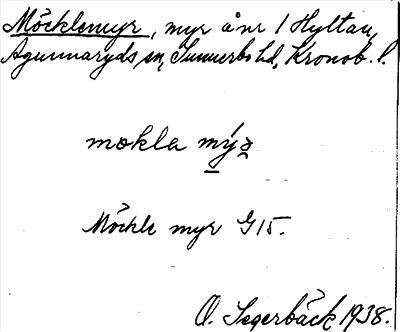 Möcklemyr, myr å nr 1 Hyltan,
Agunnaryds sn, Sunnerbo hd, Kronob. l.
mokla mýz
Möckle myr G 15.
O. Segerbäck 1938.